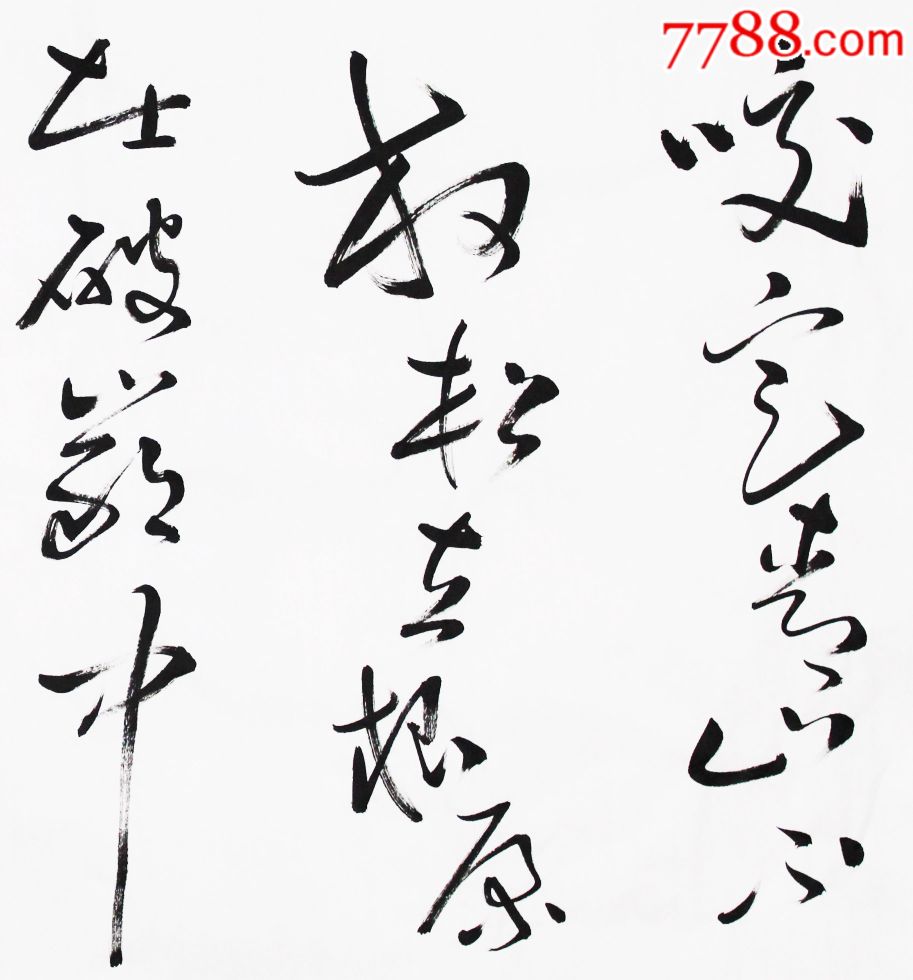 7788.com
咬定青山不
放松立根原
在破巖中